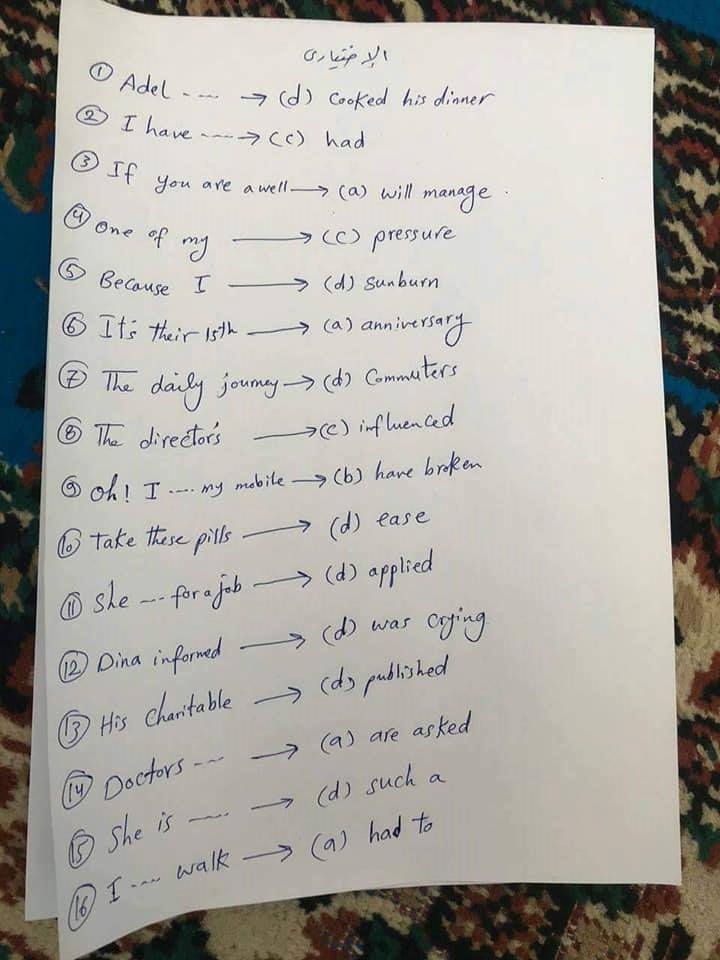 الإختيارى
① Adel ---- → (d) Cooked his dinner
② I have ----→ (c) had
③ If you are a well → (a) will manage.
④ One of my → (c) pressure
⑤ Because I → (d) Sunburn
⑥ It's their 15th → (a) anniversary
⑦ The daily journey → (d) Commuters
⑧ The director's → (c) influenced
⑨ Oh! I ---- my mobile → (b) have broken
⑩ Take these pills → (d) ease
⑪ She --- for a job → (d) applied
⑫ Dina informed → (d) was crying
⑬ His Charitable → (d) published
⑭ Doctors --- → (a) are asked
⑮ She is ---- → (d) such a
⑯ I ---- walk → (a) had to